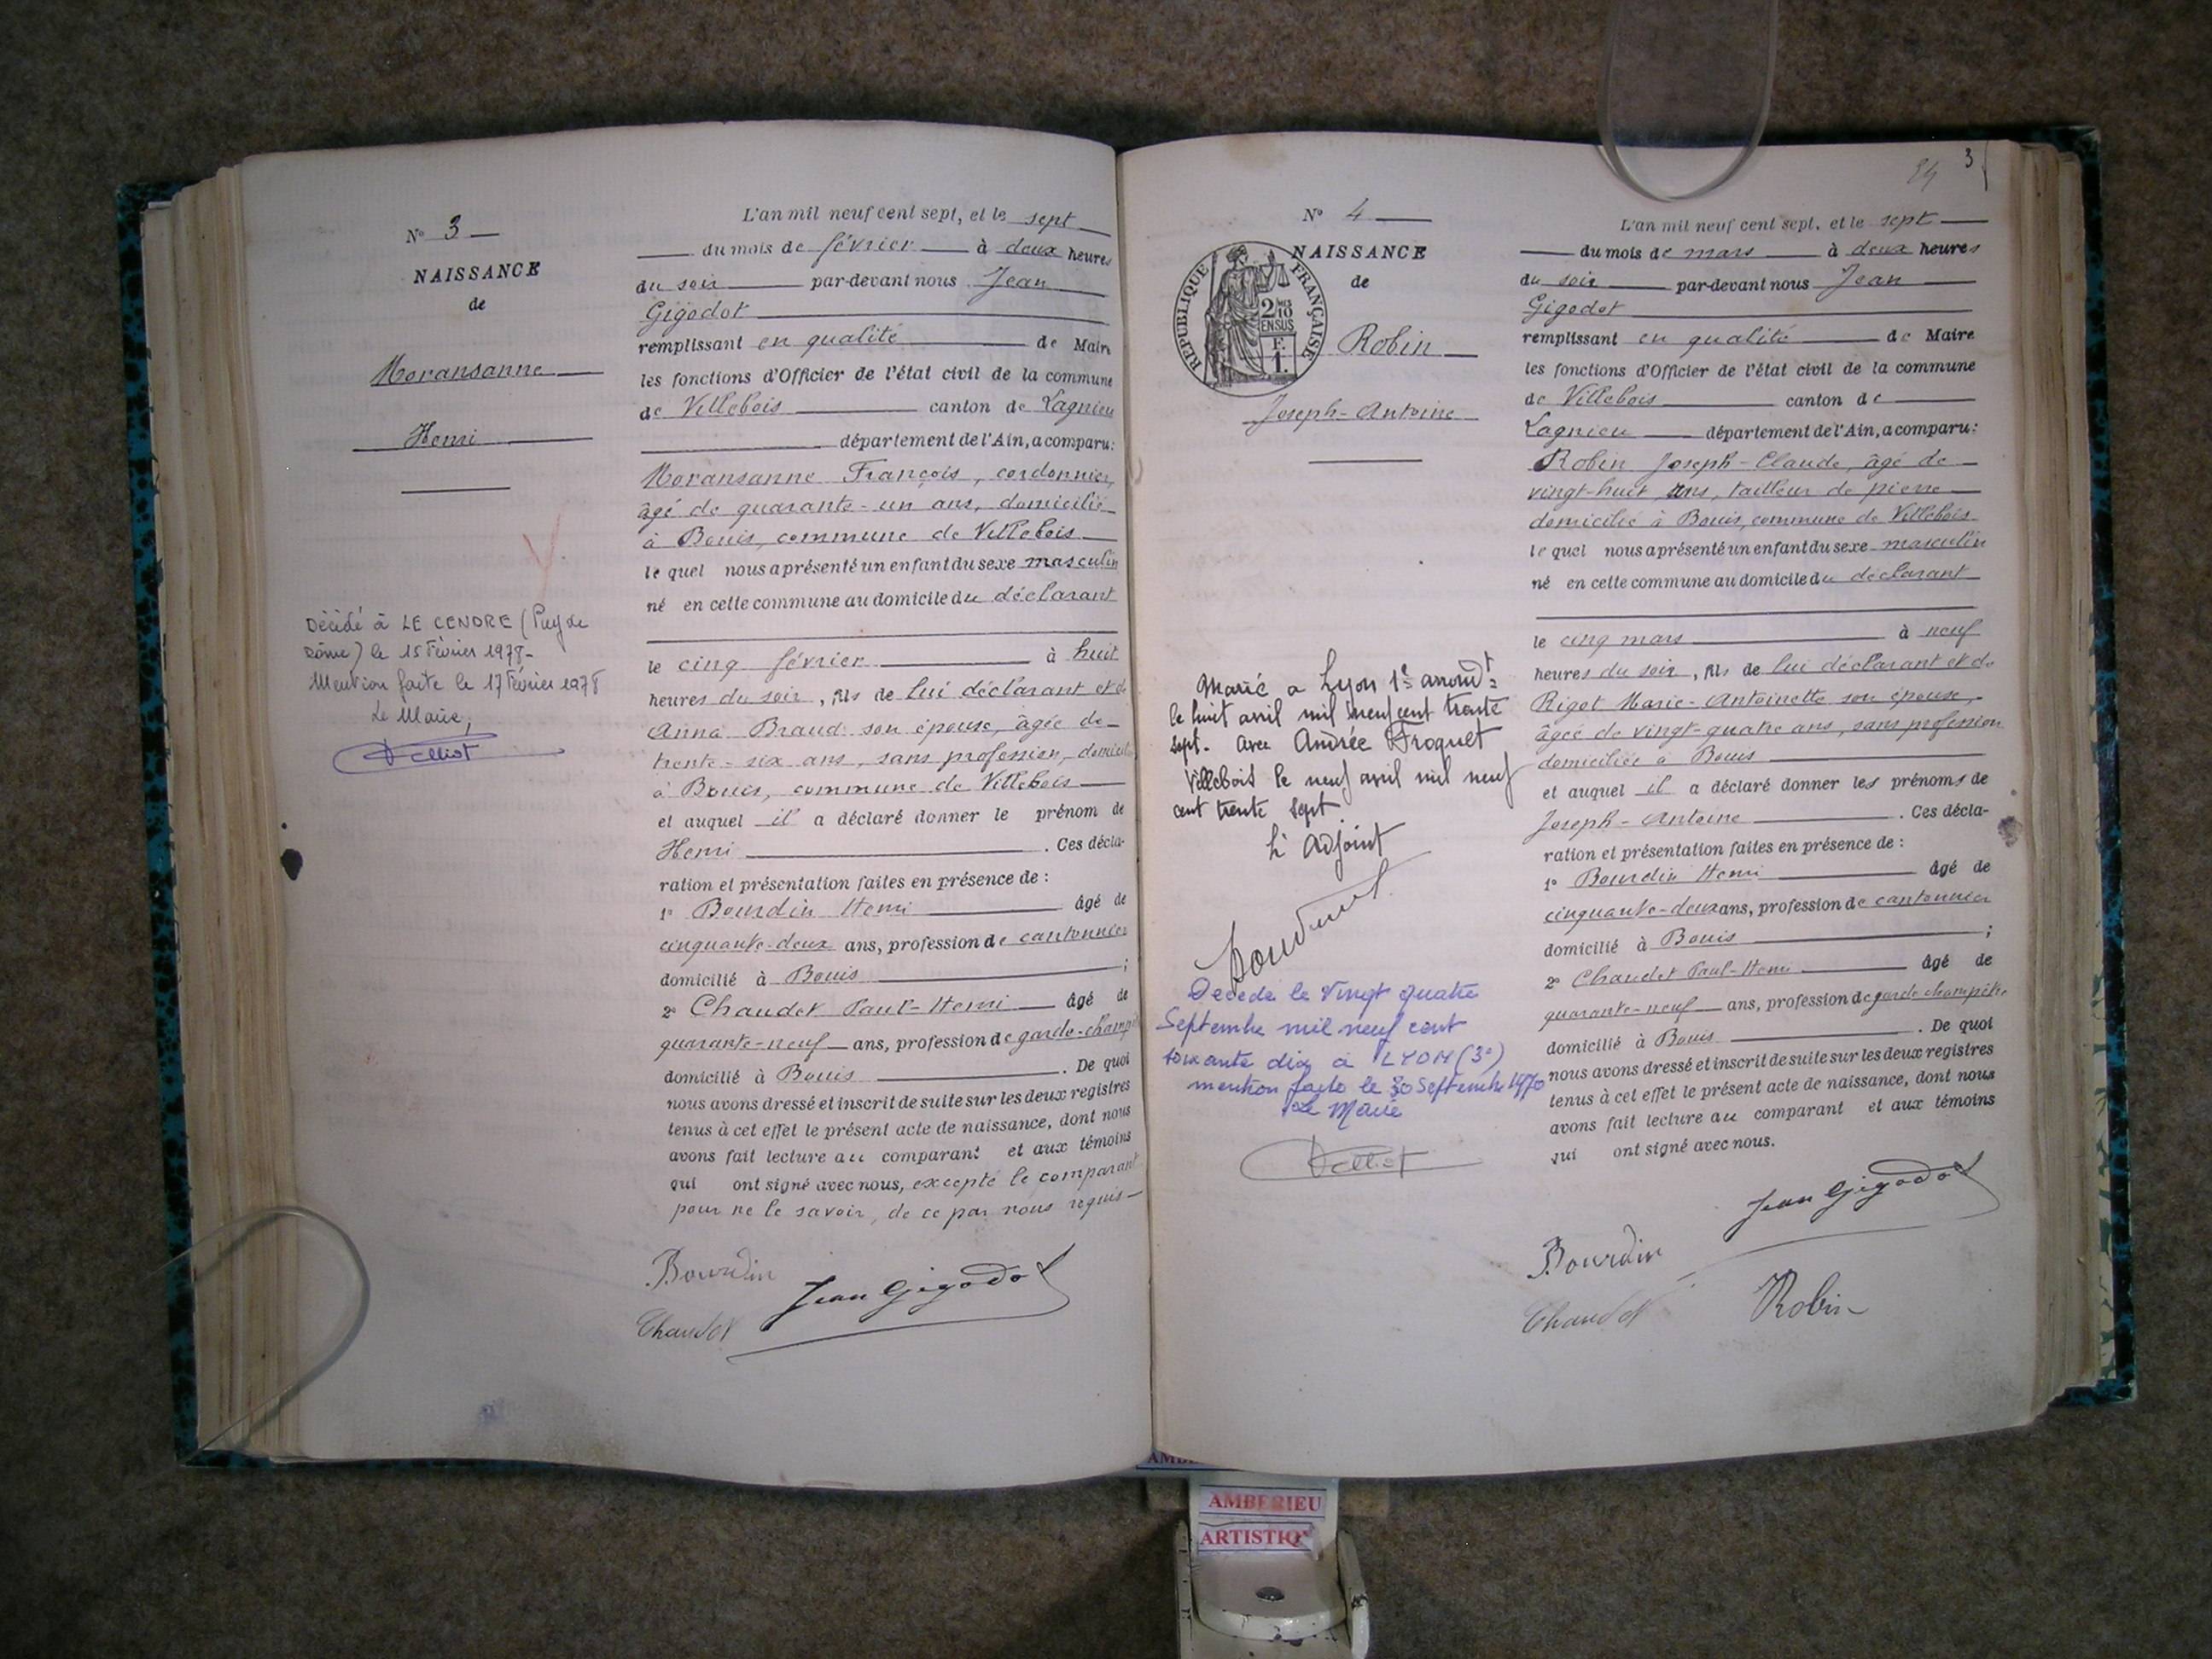 N° 3
NAISSANCE
de
Moransanne
Henri
Décédé à LE CENDRE (Puy de
Dôme) le 15 Février 1978-
Mention faite le 17 Février 1978
Le Maire,
L'an mil neuf cent sept, et le sept
du mois de février à deux heures
du soir par-devant nous Jean
Gigodot
remplissant en qualité de Maire
les fonctions d'Officier de l'état civil de la commune
de Villebois canton de Lagnieu
département de l'Ain, a comparu:
Moransanne François, cordonnier,
âgé de quarante-un ans, domicilié
à Bouis, commune de Villebois
lequel nous a présenté un enfant du sexe masculin
né en cette commune au domicile du déclarant
le cinq février à huit
heures du soir, fils de lui déclarant et de
Anna Braud son épouse, âgée de
trente-six ans, sans profession,
à Bouis, commune de Villebois
et auquel il a déclaré donner le prénom de
Henri. Ces décla-
ration et présentation faites en présence de :
1° Bourdin Henri âgé de
cinquante-deux ans, profession de cantonnier
domicilié à Bouis ;
2° Chaudet Paul-Henri âgé de
quarante-neuf ans, profession de garde-champêtre
domicilié à Bouis. De quoi
nous avons dressé et inscrit de suite sur les deux registres
tenus à cet effet le présent acte de naissance, dont nous
avons fait lecture au comparant et aux témoins
qui ont signé avec nous, excepté le comparant
pour ne le savoir, de ce par nous requis-
Bourdin
Jean Gigodot
Chaudet
84 3
N° 4
NAISSANCE
de
RÉPUBLIQUE FRANÇAISE
2/10
EN SUS
F.
1.
Robin
Joseph-Antoine
Marié a Lyon 1er arrondt
le huit avril mil neuf cent trente
sept. avec Andrée Droguet
Villebois le neuf avril mil neuf
cent trente sept
L'Adjoint
Décédé le vingt quatre
Septembre mil neuf cent
soixante dix à LYON (3e)
mention faite le 30 Septembre 1970
Le Maire
L'an mil neuf cent sept, et le sept
du mois de mars à deux heures
du soir par-devant nous Jean
Gigodot
remplissant en qualité de Maire
les fonctions d'Officier de l'état civil de la commune
de Villebois canton de
Lagnieu département de l'Ain, a comparu:
Robin Joseph-Claude, âgé de
vingt-huit ans, tailleur de pierre
domicilié à Bouis, commune de Villebois
lequel nous a présenté un enfant du sexe masculin
né en cette commune au domicile du déclarant
le cinq mars à neuf
heures du soir, fils de lui déclarant et de
Rigot Marie-Antoinette son épouse,
âgée de vingt-quatre ans, sans profession
domiciliée à Bouis
et auquel il a déclaré donner les prénoms de
Joseph-Antoine. Ces décla-
ration et présentation faites en présence de :
1° Bourdin Henri âgé de
cinquante-deux ans, profession de cantonnier
domicilié à Bouis ;
2° Chaudet Paul-Henri âgé de
quarante-neuf ans, profession de garde champêtre
domicilié à Bouis. De quoi
nous avons dressé et inscrit de suite sur les deux registres
tenus à cet effet le présent acte de naissance, dont nous
avons fait lecture au comparant et aux témoins
qui ont signé avec nous.
Jean Gigodot
Bourdin
Chaudet
Robin
AMBERIEU
ARTISTIQ